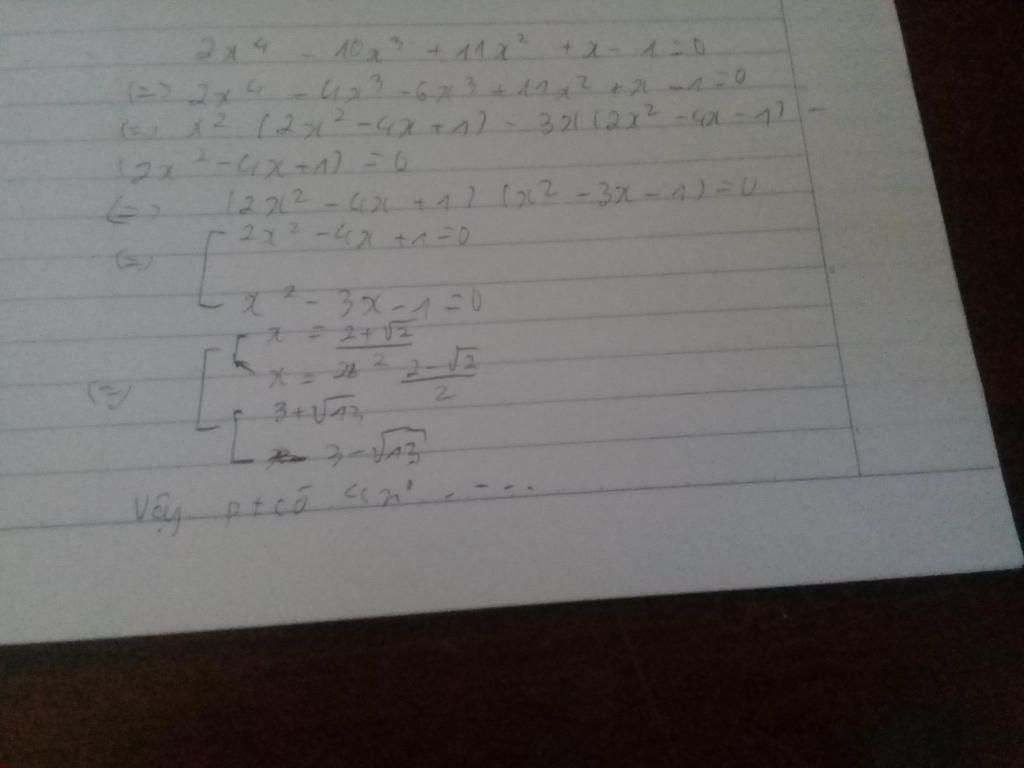 2x⁴ - 10x³ + 11x² + x - 1 = 0
(=) 2x⁴ - 4x³ - 6x³ + 11x² + x - 1 = 0
(=) x² (2x² - 4x + 1) - 3x(2x² - 4x - 1) -
(2x² - 4x + 1) = 0
(=) (2x² - 4x + 1) (x² - 3x - 1) = 0
(=) [ 2x² - 4x + 1 = 0
x² - 3x - 1 = 0
(=) [ [ x = 2+√2 / 2
x = 2-√2 / 2
[ 3 + √13
3 - √13
Vậy pt có 4 n⁰ . - - -